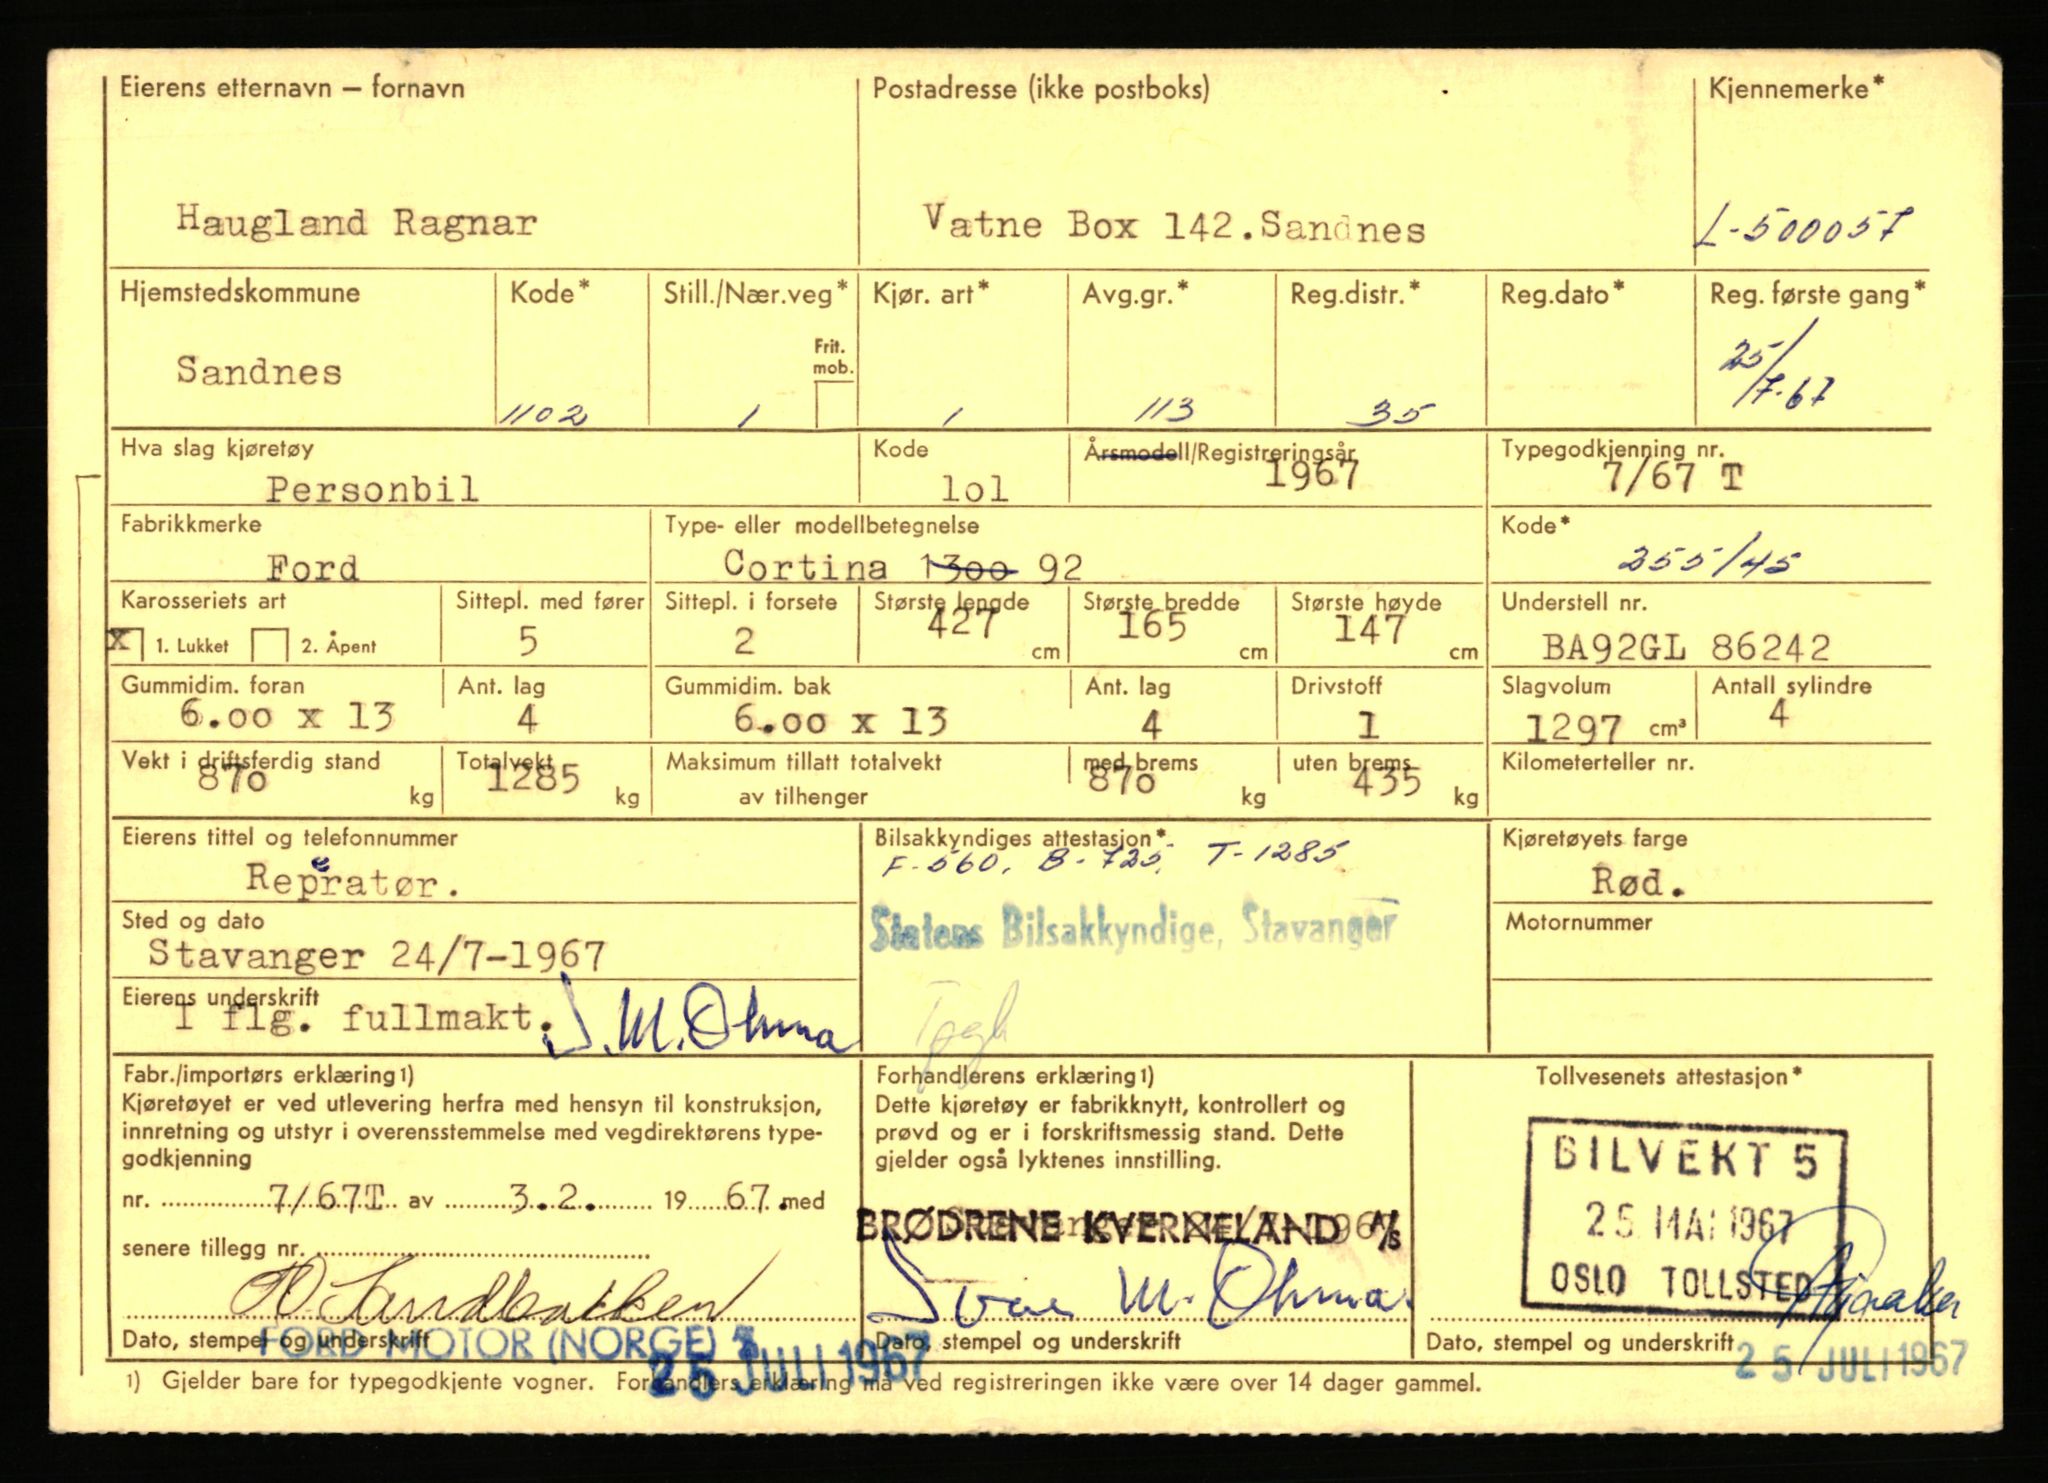 Eierens etternavn — fornavn Postadresse (ikke postboks) Kjennemerke*
Haugland Ragnar Vatne Box 142.Sandnes L-500057
Hjemstedskommune Kode* Still./Nær.veg* Kjør. art* Avg.gr.* Reg.distr.* Reg.dato* Reg. første gang*
Frit. mob.
Sandnes 1102 1 1 113 35 25/7-67
Hva slag kjøretøy Kode Årsmodell/Registreringsår Typegodkjenning nr.
Personbil lol 1967 7/67 T
Fabrikkmerke Type- eller modellbetegnelse Kode*
Ford Cortina 1300 92 255/45
Karosseriets art Sittepl. med fører Sittepl. i forsete Største lengde Største bredde Største høyde Understell nr.
X 1. Lukket 2. Åpent 5 2 427 cm 165 cm 147 cm BA92GL 86242
Gummidim. foran Ant. lag Gummidim. bak Ant. lag Drivstoff Slagvolum Antall sylindre
6.oo x 13 4 6.oo x 13 4 1 1297 cm³ 4
Vekt i driftsferdig stand Totalvekt Maksimum tillatt totalvekt med brems uten brems Kilometerteller nr.
87o kg 1285 kg av tilhenger 87o kg 435 kg
Eierens tittel og telefonnummer Bilsakkyndiges attestasjon* Kjøretøyets farge
F-560. B-725. T-1285
Reperatør. Rød.
Sted og dato Statens Bilsakkyndige, Stavanger Motornummer
Stavanger 24/7-1967
Eierens underskrift
I flg. fullmakt. S.M.Ohma
Fabr./importørs erklæring1) Forhandlerens erklæring1) Tollvesenets attestasjon*
Kjøretøyet er ved utlevering herfra med hensyn til konstruksjon, Dette kjøretøy er fabrikknytt, kontrollert og
innretning og utstyr i overensstemmelse med vegdirektørens type- prøvd og er i forskriftsmessig stand. Dette
godkjenning gjelder også lyktenes innstilling.
BILVEKT 5
nr. 7/67T av 3.2. 1967. med
25 MAI 1967
BRØDRENE KVERNELAND A/S
senere tillegg nr.
OSLO TOLLSTED
Sandbakken M. Ohma
Dato, stempel og underskrift Dato, stempel og underskrift Dato, stempel og underskrift
FORD MOTOR (NORGE)
25 JULI 1967 25 JULI 1967
1) Gjelder bare for typegodkjente vogner. Forhandlers erklæring må ved registreringen ikke være over 14 dager gammel.